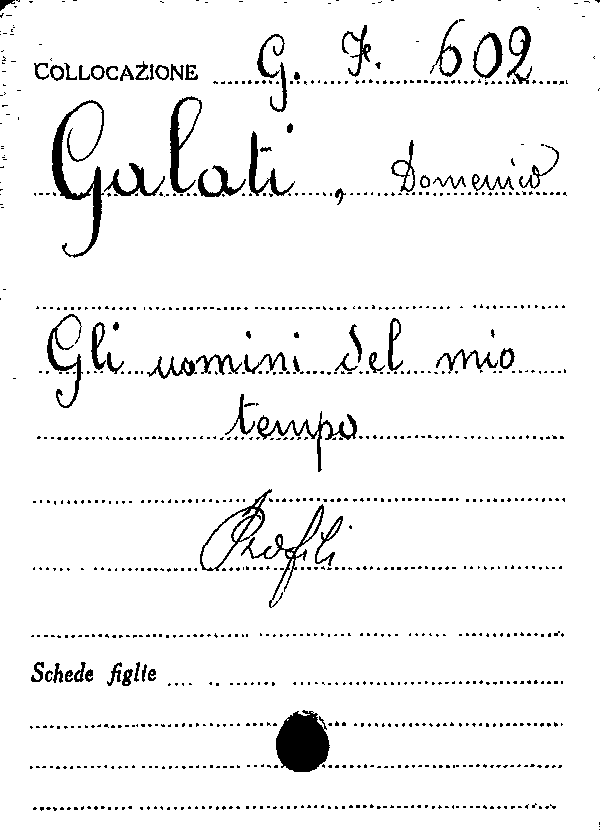 COLLOCAZIONE G. F. 602
Galati, Domenico
Gli uomini del mio
tempo
Profili
Schede figlie